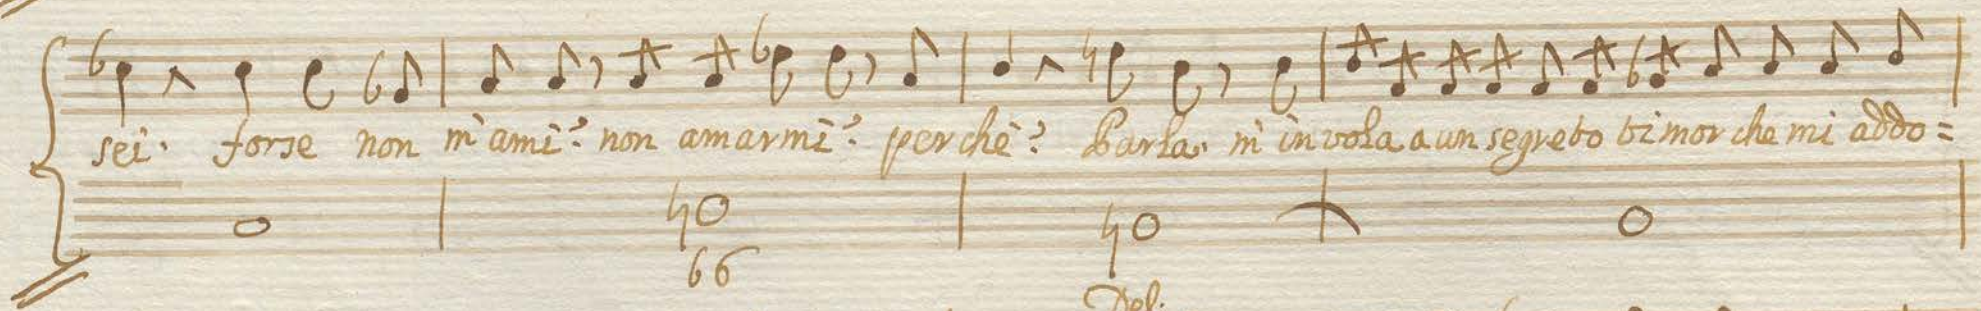 sei. forse non m'ami? non amarmi? perchè? Parla. m'invola a un segreto timor che mi addo=
66
Del.